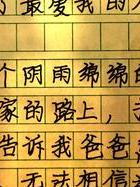 最爱我的
个阴雨绵绵的
家的路上，
告诉我爸爸
无法相信